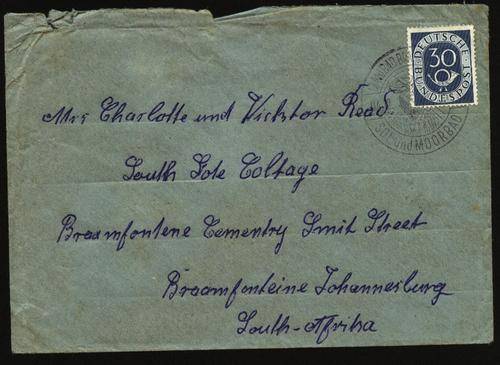 DEUTSCHE
30
BUNDESPOST
SOL und MOORBAD
Mrs Charlotte und Vicktor Read.
South Gote Coltage
Braamfontene Cementry Smit Street
Braamfonteine Johannesburg
South-Afrika